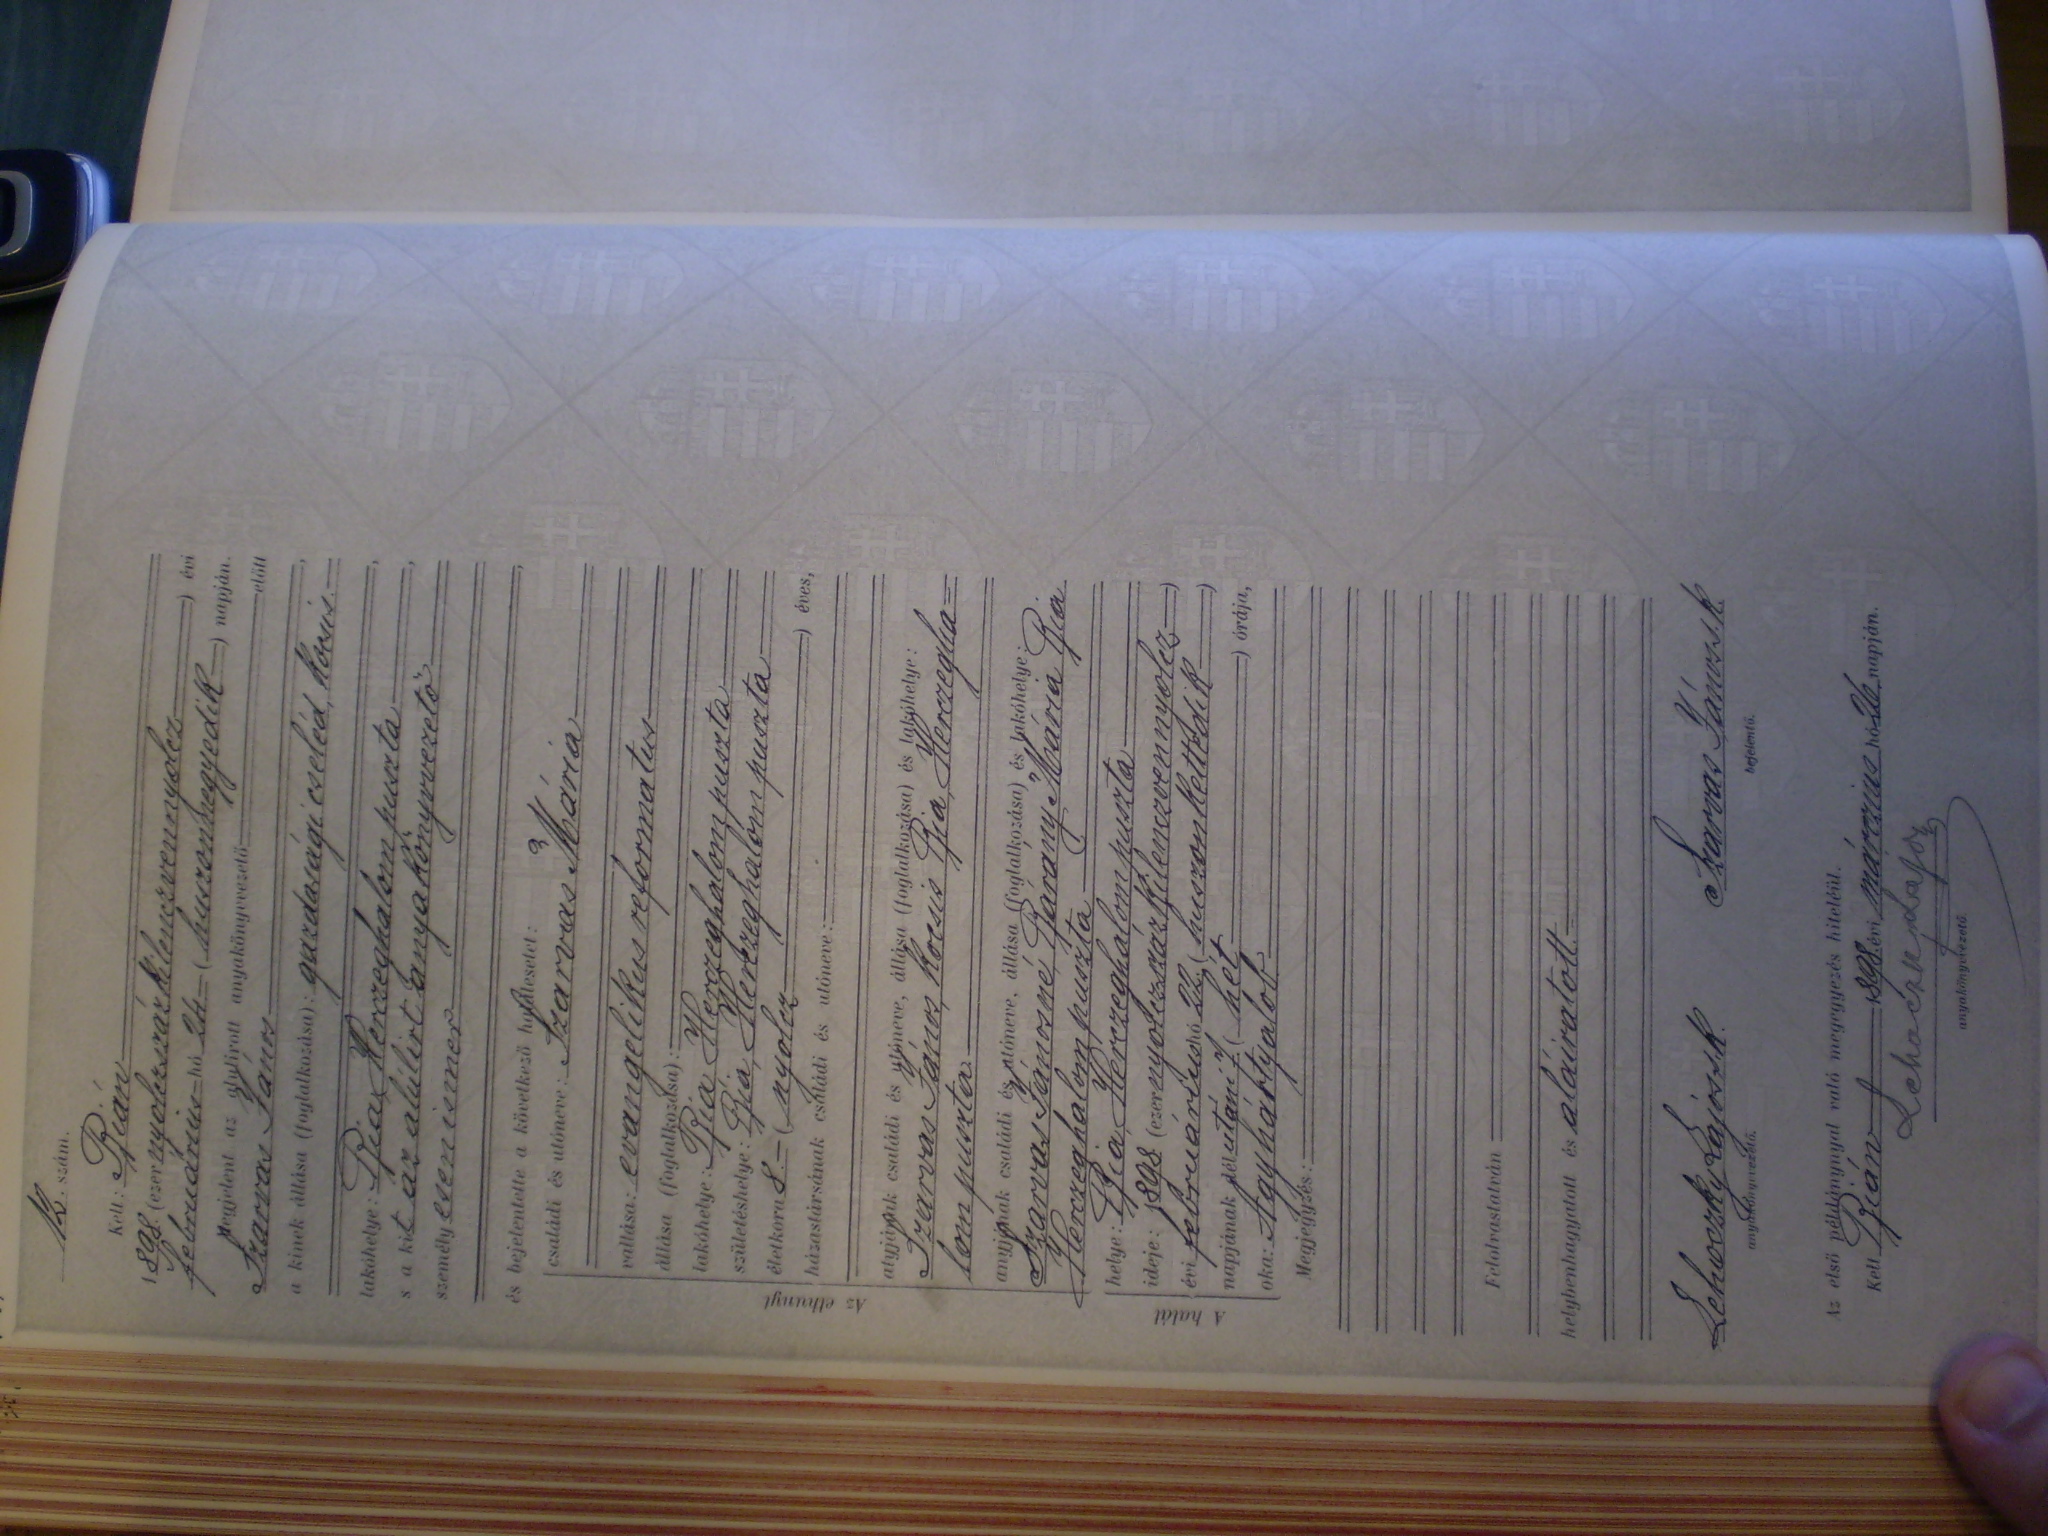 12. szám.
Kelt: Bián
1898. (ezernyolczszázkilenczvennyolcz) évi
február hó 24 (huszonnegyedik) napján.
Megjelent az alulírott anyakönyvvezető előtt
Szarvas János
a kinek állása (foglalkozása): gazdasági cseléd, kocsis.
lakóhelye: Bia, Herczeghalom puszta,
s a kit az alulirt anyakönyvvezető,
személyesen ismer
és bejelentette a következő halálesetet:
családi és utóneve: Szarvas Mária
vallása: evangelikus reformatus
állása (foglalkozása):
lakóhelye: Bia Herczeghalom puszta
születéshelye: Bia, Herczeghalom puszta
életkora 8. (nyolcz) éves,
házastársának családi és utóneve:
Az elhunyt
atyjának családi és utóneve, állása (foglalkozása) és lakóhelye:
Szarvas János, kocsis Bia, Herczegha=
lom puszta
anyjának családi és utóneve, állása (foglalkozása) és lakóhelye:
Szarvas Jánosné, Bárány Mária Bia
Herczeghalom puszta
A halál
helye: Bia, Herczeghalom puszta
ideje: 1898 (ezernyolczszázkilenczvennyolcz)
évi február hó 22 (huszonkettedik)
napjának délután 7 (hét) órája,
oka: Agyhártyalob
Megjegyzés:
Felolvastatván
helybenhagyatott és aláíratott.
Lehoczky Lajos s.k. Szarvas János s.k.
anyakönyvvezető. bejelentő.
Az első példánynyal való megegyezés hiteléül.
Kelt Bián 1898 évi március hó napján.
Lehoczky Lajos
anyakönyvvezető.